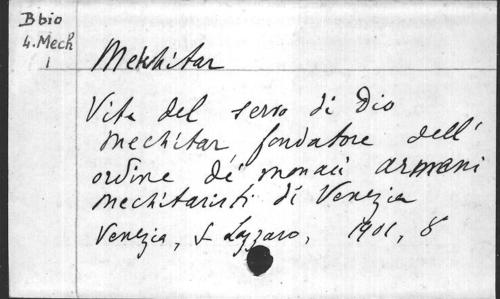 B bio
4. Mech
1
Mekhitar
Vita del servo di Dio
Mechitar fondatore dell'
ordine dei monaci armeni
mechitaristi di Venezia
Venezia, S. Lazzaro, 1901, 8